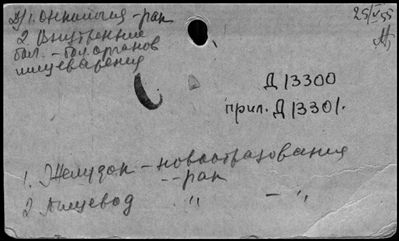 Д/1. Онкология - рак
2. Внутренние
бол. - бол. органов
пищеварения
25/V 55
Д 13300
прил. Д 13301.
1. Желудок - новообразования
-- рак
2 Пищевод " - "